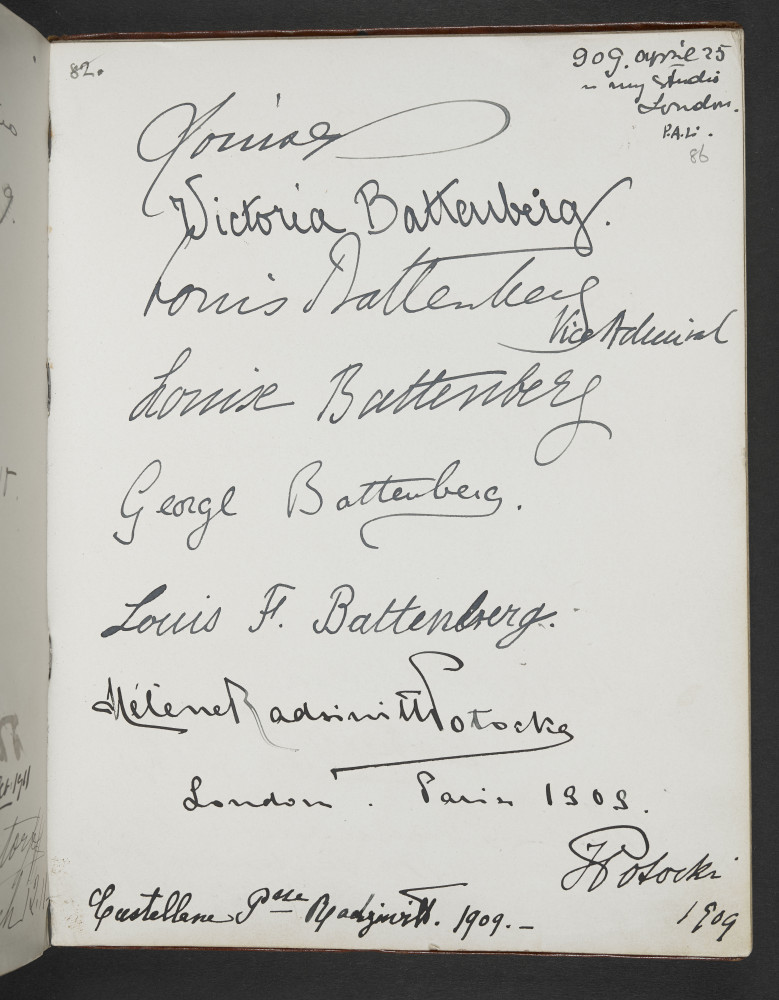 82.
909. april 25
in my Studio
London.
P.A.L.
86
Louise
Victoria Battenberg.
Louis Battenberg
Vice Admiral
Louise Battenberg
George Battenberg.
Louis F. Battenberg.
Hélène Radziwill Potocka
London. Paris 1909.
JPotocki
1909
Castellane Psse Radziwill. 1909. –